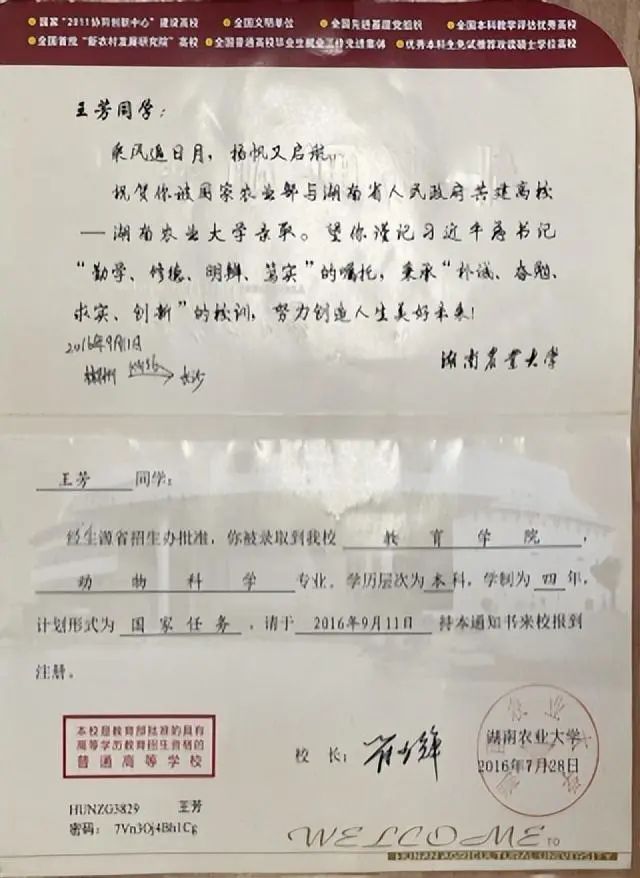 国家“2011协同创新中心”建设高校 全国文明单位 全国先进基层党组织 全国本科教学评估优秀高校
全国首批“新农村发展研究院”高校 全国普通高校毕业生就业工作先进集体 优秀本科生免试推荐攻读硕士学位高校
王芳同学：
乘风追日月，扬帆又启航。
祝贺你被国家农业部与湖南省人民政府共建高校
—湖南农业大学录取。望你谨记习近平总书记
“勤学、修德、明辨、笃实”的嘱托，秉承“朴诚、奋勉、
求实、创新”的校训，努力创造人生美好未来！
2016年9月11日
长沙
湖南农业大学
王芳 同学：
经生源省招生办批准，你被录取到我校 教育学院，
动物科学 专业。学历层次为本科，学制为四年，
计划形式为 国家任务。请于 2016年9月11日 持本通知书来校报到
注册。
本校是教育部批准的具有
高等学历教育招生资格的
普通高等学校
校 长：
湖南农业大学
2016年7月28日
HUNZG3829 王芳
密码：7Vn3Oj4Bh1Cg
TO
HUNAN AGRICULTURAL UNIVERSITY